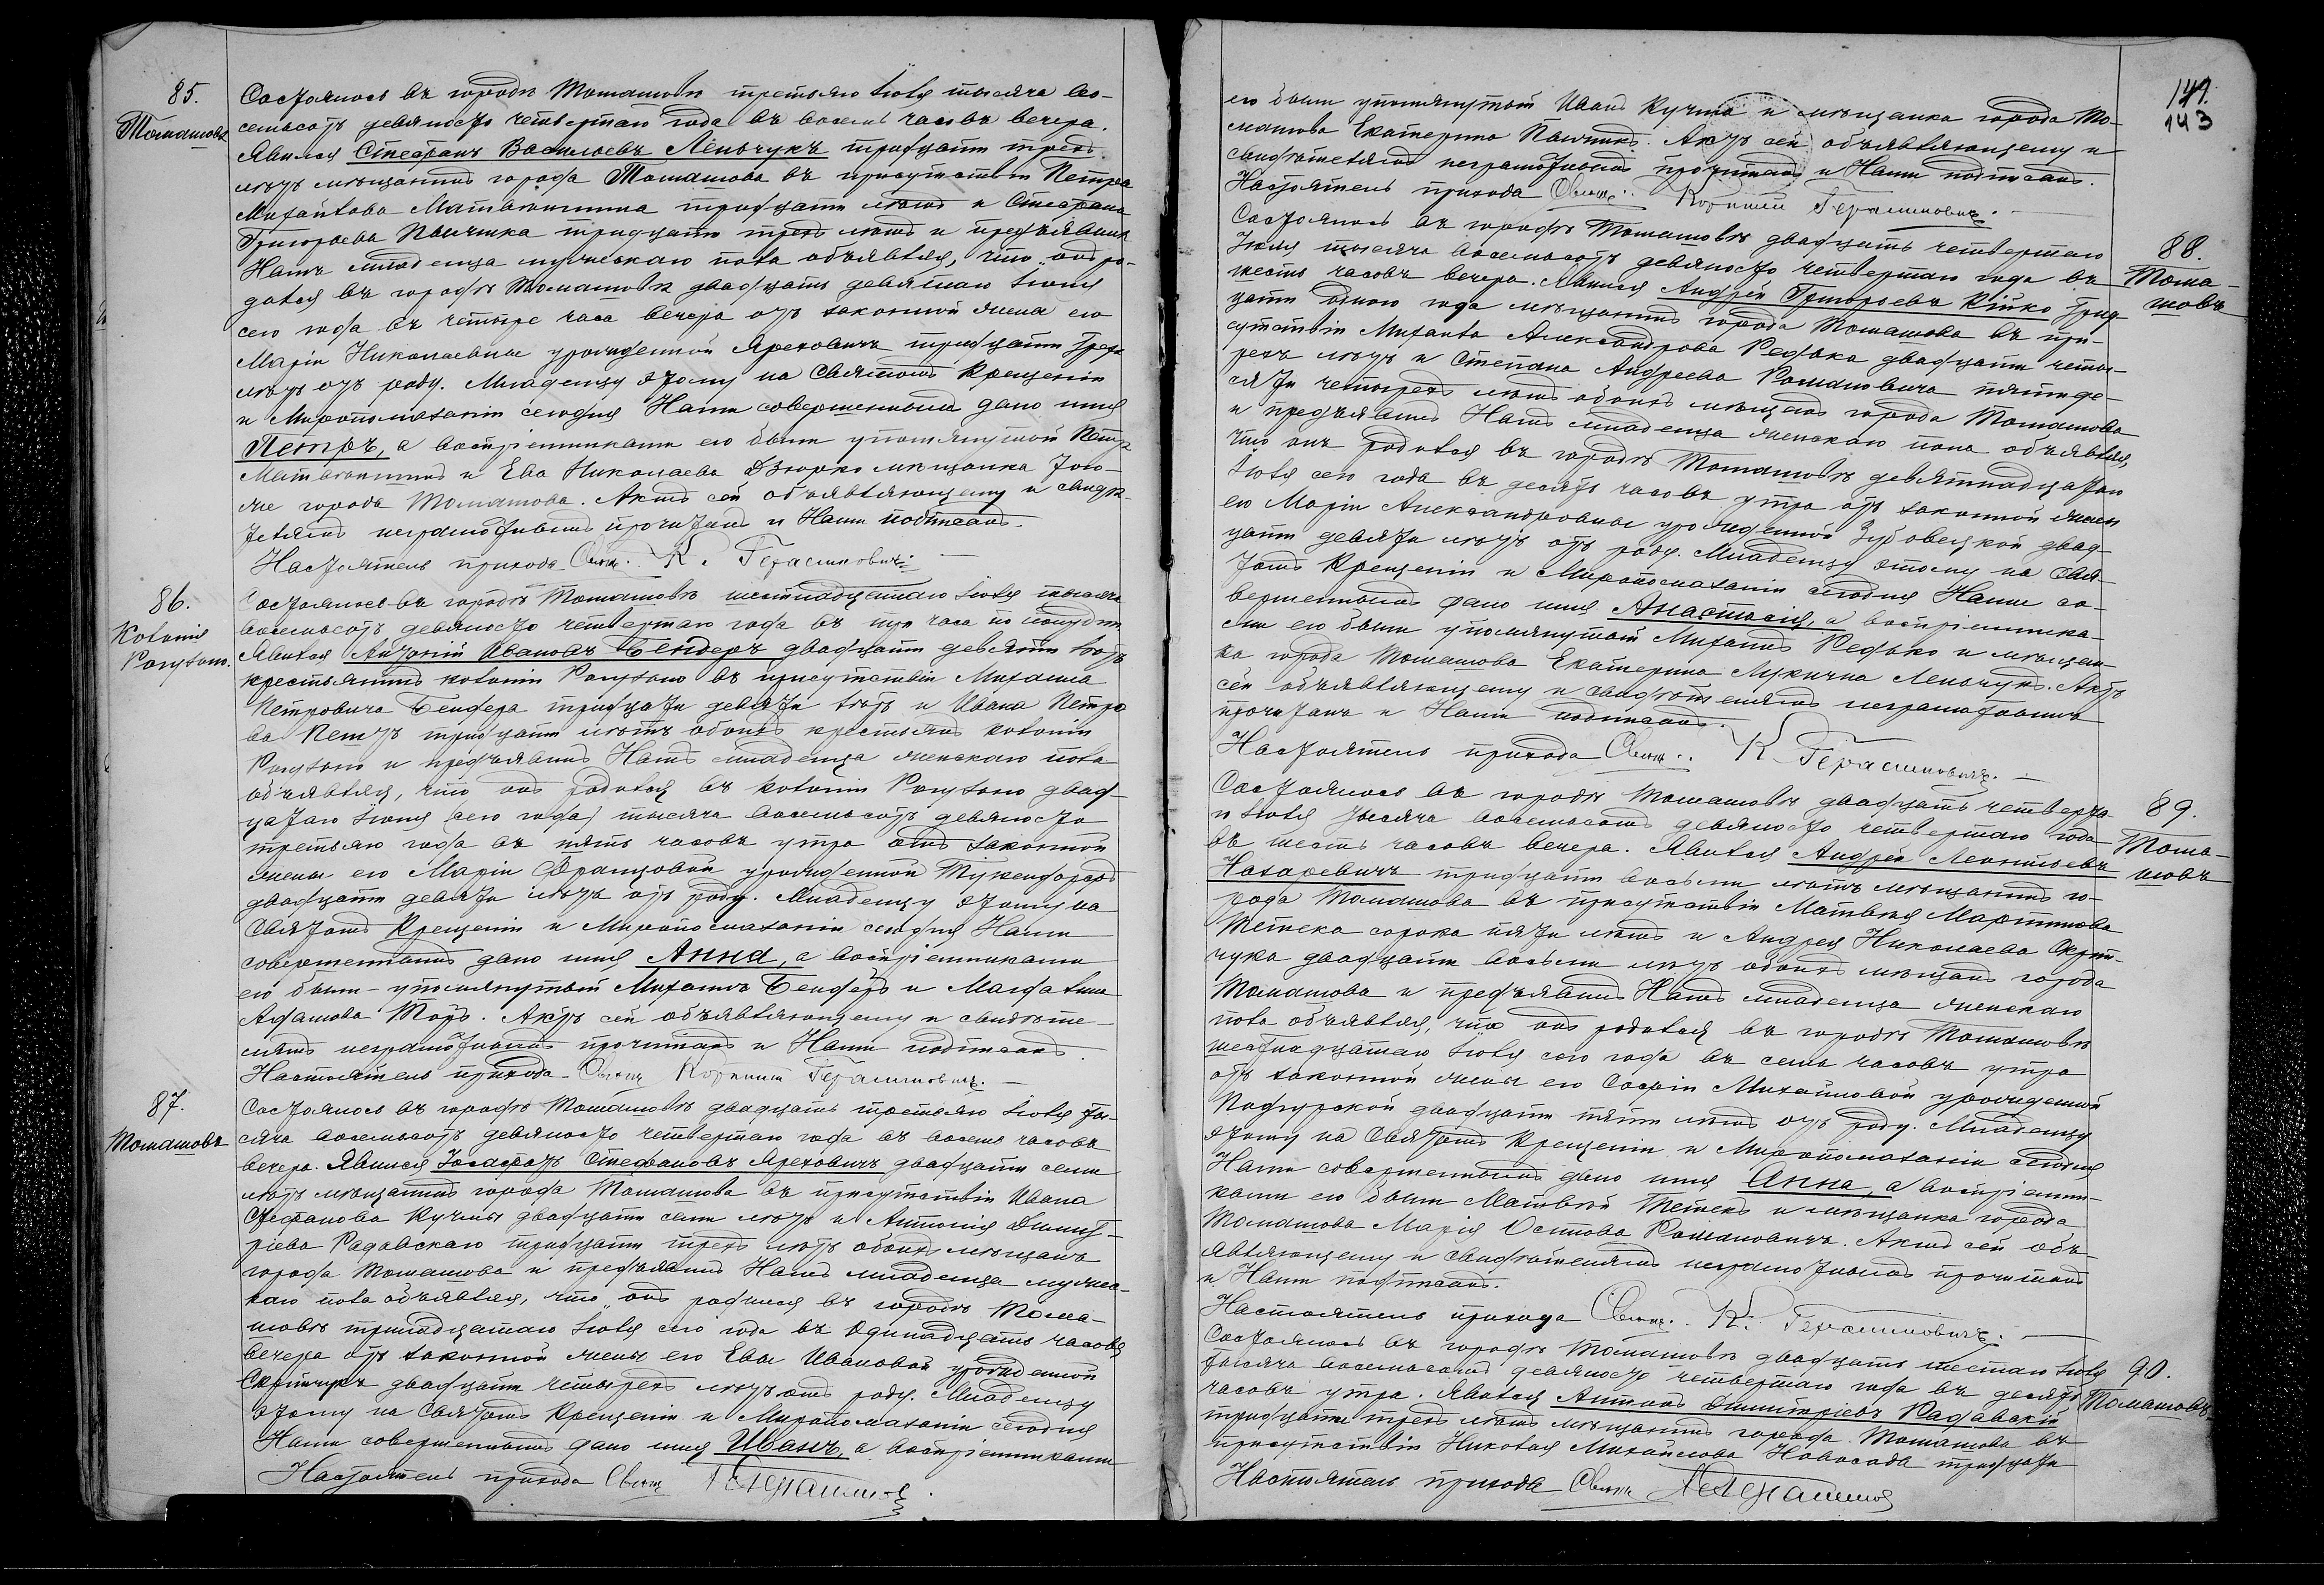 85.
Томашовъ
Состоялось въ городѣ Томашовѣ третьяго Іюля тысяча во-
семьсотъ девяносто четвертаго года въ восемь часовъ вечера.
Явился Стефанъ Васильевъ Леньчукъ тридцати трехъ
лѣтъ мѣщанинъ города Томашова въ присутствіи Петра
Михайлова тридцати лѣтъ и Стефана
Григорьева тридцати трехъ лѣтъ и предъявилъ
Намъ младенца мужескаго пола объявляя, что онъ ро-
дился въ городѣ Томашовѣ двадцать девятаго Іюня
сего года въ четыре часа вечера отъ законной жены его
Маріи Николаевны урожденной Яреховичъ тридцати трехъ
лѣтъ отъ роду. Младенцу этому на Святомъ Крещеніи
и Миропомазаніи сегодня Нами совершенномъ дано имя
Петръ, а воспріемниками его были упомянутый Петръ
и Ева Николаева Дзюрко мѣщанка тою-
же города Томашова. Актъ сей объявляющему и свидѣ-
телямъ неграмотнымъ прочитанъ и Нами подписанъ.
Настоятель прихода Свящ. К. Герасимовичъ.
86.
Колонія
Состоялось въ городѣ Томашовѣ шестнадцатаго Іюля тысяча
восемьсотъ девяносто четвертаго года въ три часа по полудни
Явился Антоній Ивановъ Бендеръ двадцати девяти лѣтъ
крестьянинъ колоніи въ присутствіи Михаила
Петровича Бендера тридцати девяти лѣтъ и Ивана Петро
ва тридцати лѣтъ обоихъ крестьянъ колоніи
и предъявилъ Намъ младенца женскаго пола
объявляя, что онъ родился въ колоніи двад-
цатаго Іюня (сего года) тысяча восемьсотъ девяносто
третьяго года въ пять часовъ утра отъ законной
жены его Маріи Францовой урожденной
двадцати девяти лѣтъ отъ роду. Младенцу этому на
Святомъ Крещеніи и Миропомазаніи сегодня Нами
совершенномъ дано имя Анна, а воспріемниками
его были упомянутый Михаилъ Бендеръ и Магдалина
Адамова. Актъ сей объявляющему и свидѣте-
лямъ неграмотнымъ прочитанъ и Нами подписанъ.
Настоятель прихода Свящ. Корнилій Герасимовичъ.
87.
Томашовъ
Состоялось въ городѣ Томашовѣ двадцать третьяго Іюля ты-
сяча восемьсотъ девяносто четвертаго года въ восемь часовъ
вечера. Явился Іосафатъ Стефановъ Яреховичъ двадцати семи
лѣтъ мѣщанинъ города Томашова въ присутствіи Ивана
Стефанова Кучмы двадцати семи лѣтъ и Антонія Димит-
ріева Радавскаго тридцати трехъ лѣтъ обоихъ мѣщанъ
города Томашова и предъявилъ Намъ младенца мужес-
каго пола объявляя, что онъ родился въ городѣ Тома-
шовѣ тринадцатаго Іюля сего года въ одинадцать часовъ
вечера отъ законной жены его Евы Ивановой урожденной
Скрипчукъ двадцати четырехъ лѣтъ отъ роду. Младенцу
этому на Святомъ Крещеніи и Миропомазаніи сегодня
Нами совершенномъ дано имя Иванъ, а воспріемниками
Настоятель прихода Свящ.
147.
143
его были упомянутый Иванъ Кучма и мѣщанка города То-
машова Екатерина. Актъ сей объявляющему и
свидѣтелямъ неграмотнымъ прочитанъ и Нами подписанъ.
Настоятель прихода Свящ. Корнилій Герасимовичъ.
88.
Тома-
шовъ
Состоялось въ городѣ Томашовѣ двадцать четвертаго
Іюля тысяча восемьсотъ девяносто четвертаго года въ
шесть часовъ вечера. Явился Андрей Григорьевъ Кійко трид-
цати одного года мѣщанинъ города Томашова въ при-
сутствіи Михаила Александрова Редька двадцати четы-
рехъ лѣтъ и Степана Андреева Романовича пятиде-
сяти четырехъ лѣтъ обоихъ мѣщанъ города Томашова
и предъявилъ Намъ младенца женскаго пола объявляя,
что онъ родился въ городѣ Томашовѣ девятнадцатаго
Іюля сего года въ десять часовъ утра отъ законной жены
его Маріи Александровны урожденной двад-
цати девяти лѣтъ отъ роду. Младенцу этому на Свя-
томъ Крещеніи и Миропомазаніи сегодня Нами со-
вершенномъ дано имя Анастасія, а воспріемника-
ми его были упомянутый Михаилъ Редько и мѣщан-
ка города Томашова Екатерина Лукична Леньчукъ. Актъ
сей объявляющему и свидѣтелямъ неграмотнымъ
прочитанъ и Нами подписанъ.
Настоятель прихода Свящ. К. Герасимовичъ.
89.
Тома-
шовъ
Состоялось въ городѣ Томашовѣ двадцать четверта-
го Іюля тысяча восемьсотъ девяносто четвертаго года
въ шесть часовъ вечера. Явился Андрей Леонтьевъ
Назаревичъ тридцати восьми лѣтъ мѣщанинъ го-
рода Томашова въ присутствіи Матвѣя Мартинова
сорока пяти лѣтъ и Андрея Николаева Скрип-
чука двадцати восьми лѣтъ обоихъ мѣщанъ города
Томашова и предъявилъ Намъ младенца женскаго
пола объявляя, что онъ родился въ городѣ Томашовѣ
шестнадцатаго Іюля сего года въ семь часовъ утра
отъ законной жены его Софіи Михайловой урожденной
двадцати пяти лѣтъ отъ роду. Младенцу
этому на Святомъ Крещеніи и Миропомазаніи сегодня
Нами совершенномъ дано имя Анна, а воспріемни-
ками его были Матвѣй и мѣщанка города
Томашова Марія Романовичъ. Актъ сей объ-
являющему и свидѣтелямъ неграмотнымъ прочитанъ
и Нами подписанъ.
Настоятель прихода Свящ. К. Герасимовичъ.
90.
Томашовъ
Состоялось въ городѣ Томашовѣ двадцать шестаго Іюля
тысяча восемьсотъ девяносто четвертаго года въ десять
часовъ утра. Явился Антонъ Димитріевъ Радавскій
тридцати трехъ лѣтъ мѣщанинъ города Томашова въ
присутствіи Николая Михайлова Новосада тридцати
Настоятель прихода Свящ.